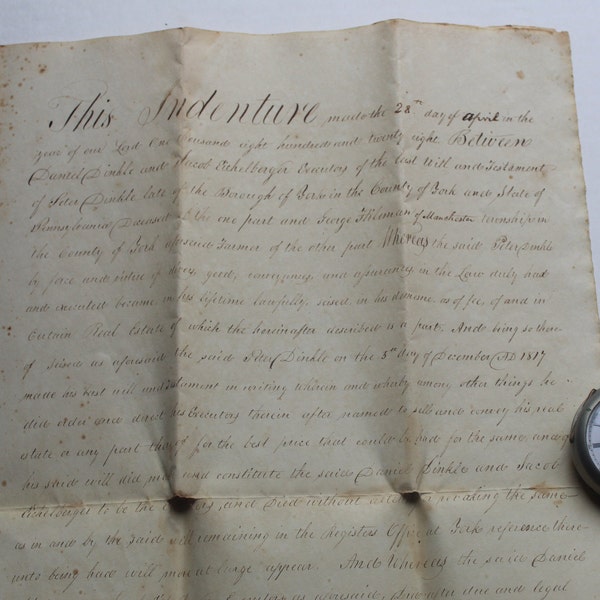 This Indenture made the 28th day of April in the
year of our Lord One thousand eight hundred and twenty eight Between
Daniel Dinkle and Jacob Eichelberger Executors of the last Will and Testament
of Peter Dinkle late of the Borough of York in the County of York and State of
Pennsylvania Deceased of the one part and George of Manchester township in
the County of York aforesaid Farmer of the other part Whereas the said Peter Dinkle
by force and virtue of divers, good, conveyances, and assurances in the Law duly had
and executed became in his lifetime lawfully seized in his demesne as of fee of and in
Certain Real Estate of which the hereinafter described is a part. And being so there
of seized as aforesaid the said Peter Dinkle on the 5th day of December AD 1817
made his last will and testament in writing wherein and whereby among other things he
did order and direct his Executors therein after named to sell and convey his real
estate or any part thereof for the best price that could be had for the same, and by
his said will did and constitute the said Daniel Dinkle and Jacob
Eichelberger to be the and Died without revoking the same
as in and by the said will remaining in the Registers Office at York reference there-
unto being had will more at large appear. And Whereas the said Daniel
as aforesaid, due and legal